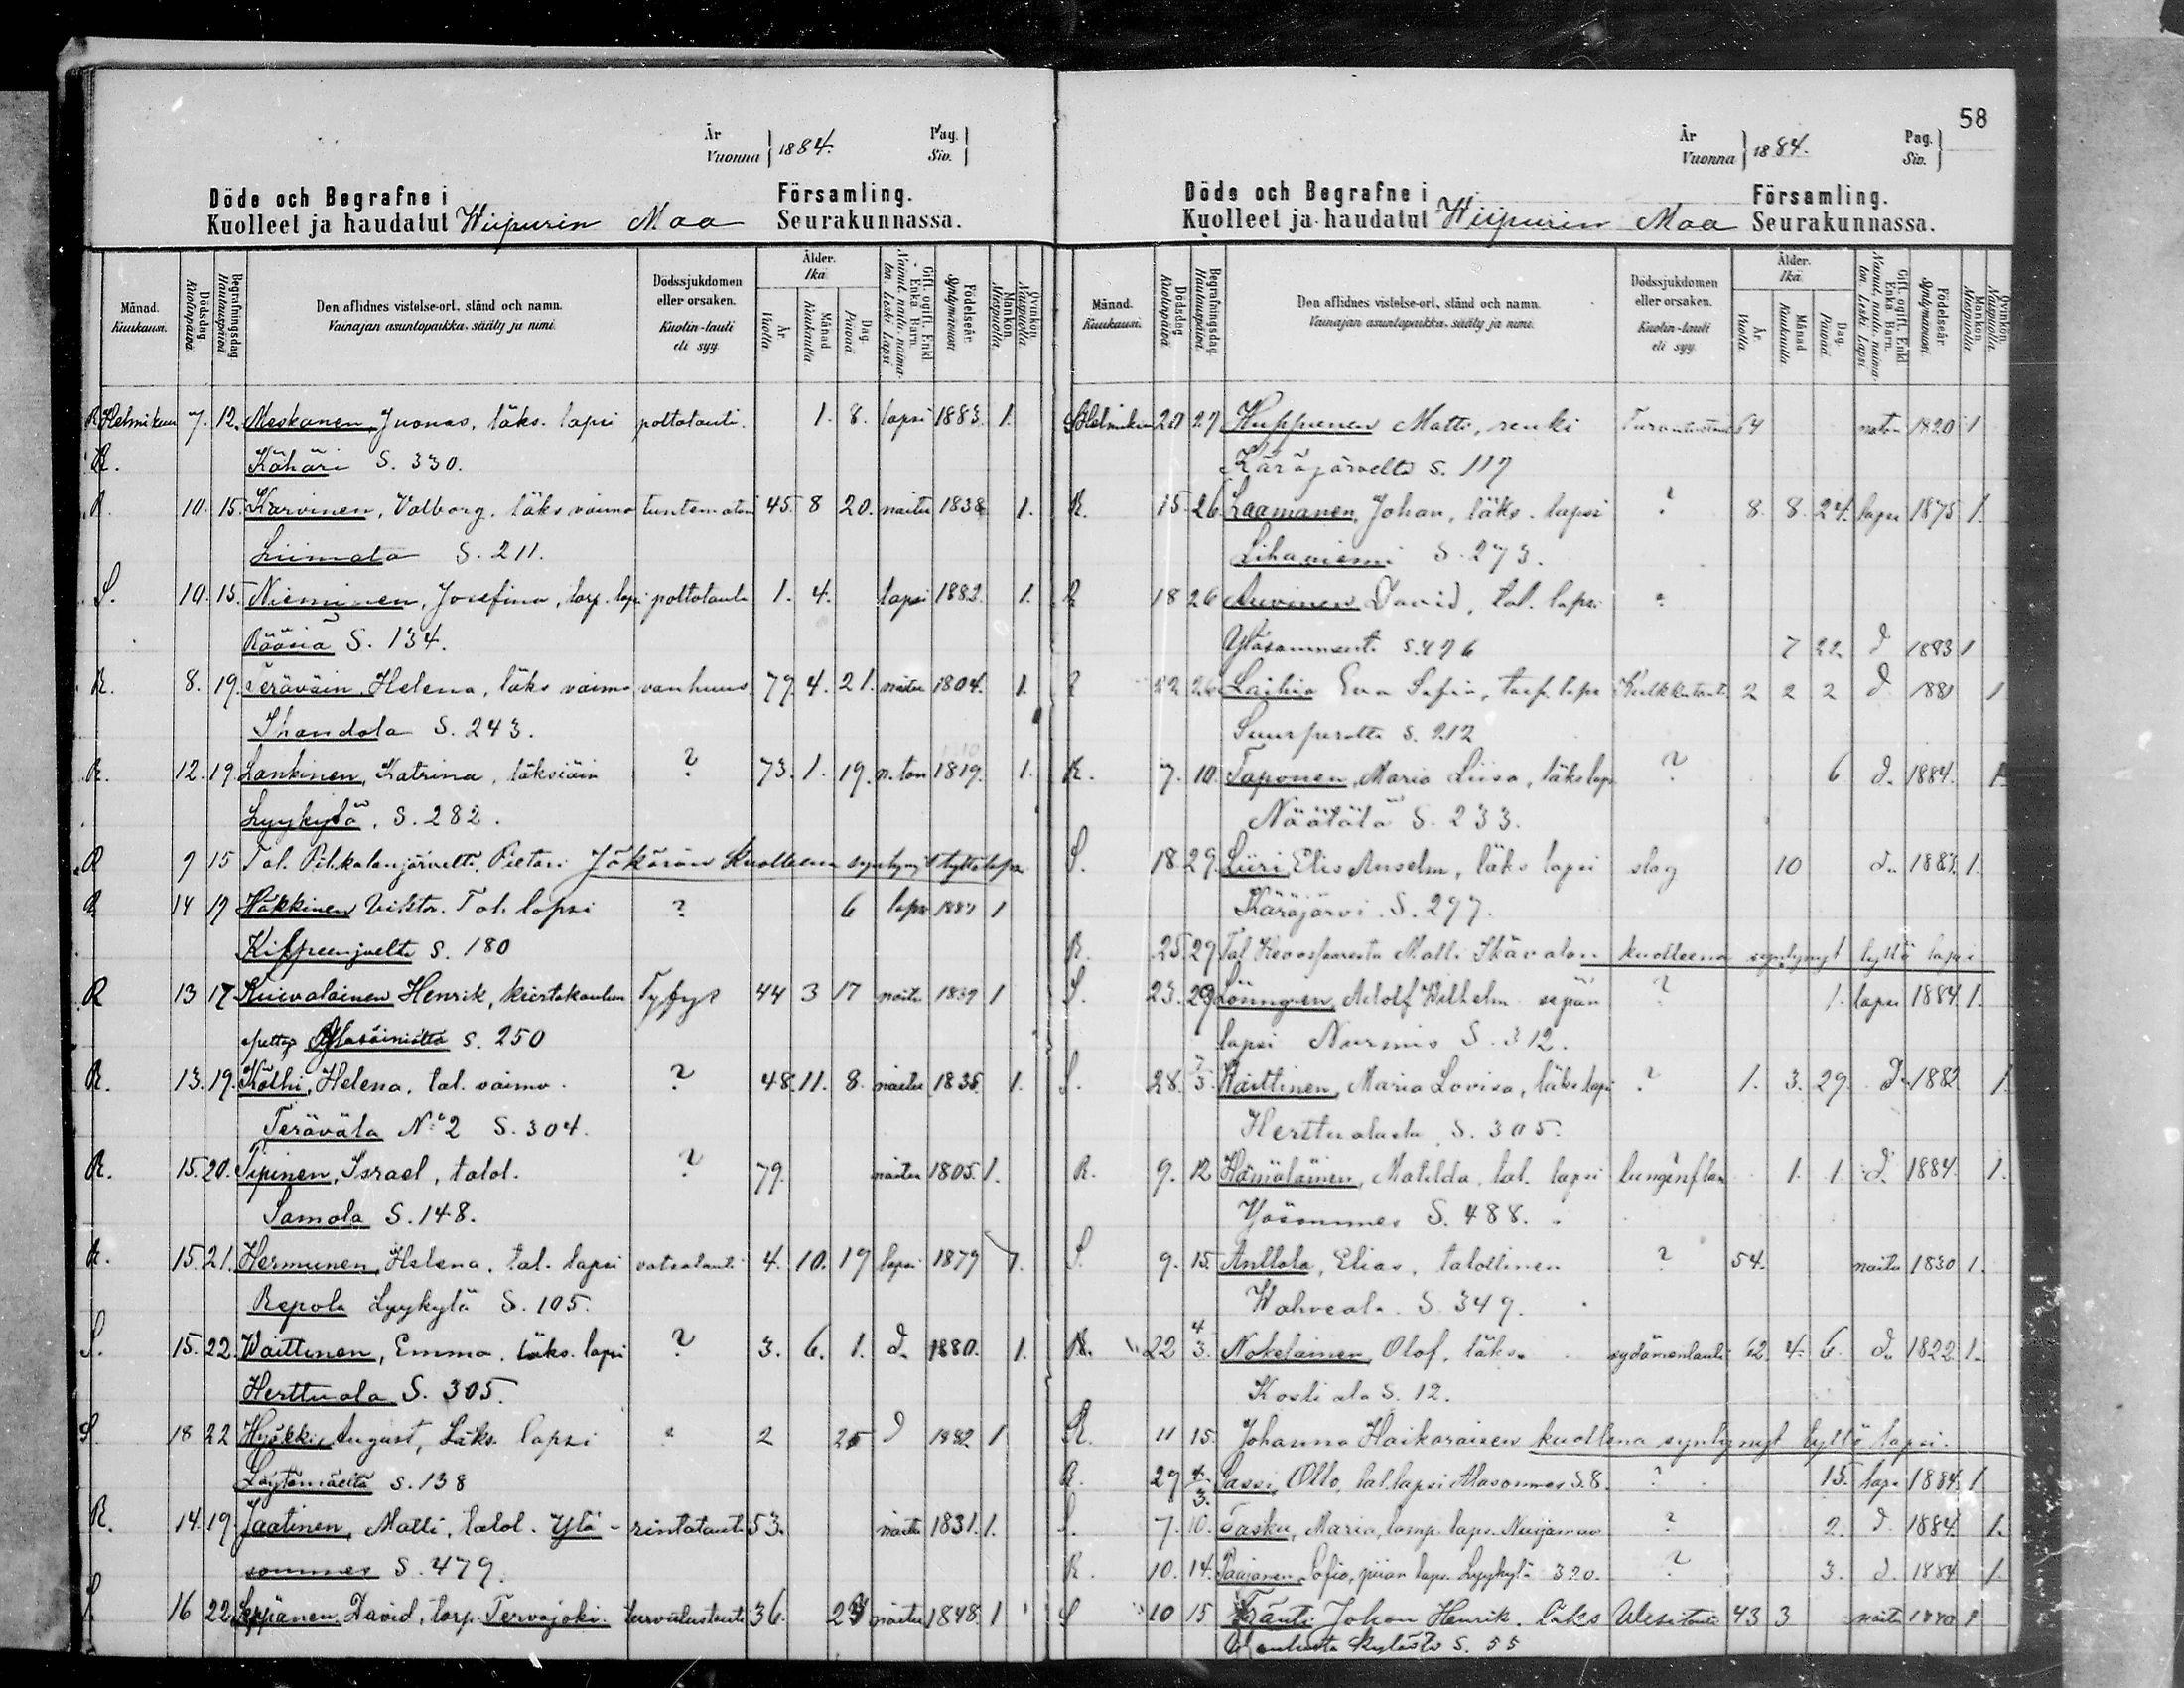 År
Vuonna } 1884.
Pag.
Siv. }
Döde och Begrafne i Församling.
Kuolleet ja haudatut Wiipurin Maa Seurakunnassa.
Månad. Kuukausi.
Dödsdag Kuolinpäivä
Begrafningsdag Hautauspäivä
Den aflidnes vistelse-ort, stånd och namn.
Vainajan asuntopaikka, sääty ja nimi.
Dödssjukdomen eller orsaken.
Kuolin-tauti eli syy.
Ålder. Ikä.
År. Vuotta
Månad Kuukautta
Dag. Päivää
Gift, ogift, Enkl. Enka Barn.
Nainut, naitu, naimaton, Leski, Lapsi
Födelseår. Syntymävuosi
Mankön. Miespuolia
Qvinkön. Naispuolia
R Helmikuu 7. 12. Meskanen, Juonas, läks. lapsi poltotauti. 1. 8. lapsi 1883. 1.
R. Kähäri S. 330.
R. 10. 15. Karvinen, Valborg, läks vaimo tuntematon 45. 8 20. naitu 1838 1.
Liimata S. 211.
S. 10. 15. Nieminen, Josefina, torp. lapsi poltotauti 1. 4. lapsi 1882. 1.
Rääsiä S. 134.
R. 8. 19. Teräväin, Helena, läks vaimo vanhuus 79. 4. 21. naitu 1804. 1.
Ihandola S. 243.
R. 12. 19. Lankinen, Katrina, läksiäin ? 73. 1. 19. n. ton 1819. 1.
Lyykylä, S. 282.
R 9 15 Tal. Pihkalanjärveltä, Pietari Jäkärän kuolleena syntynyt tyttölapsi
R 14 17 Häkkinen Viktor. Tal. lapsi ? 6 lapsi 1884 1
Kilpeenjoelta S. 180
R 13 17 Kuivalainen Henrik, kiertokoulun Tyfys 44 3 17 naitu 1839 1
opettaja S. 250
R. 13. 19. Kolhi, Helena, tal. vaimo. ? 48. 11. 8. naitu 1835. 1.
Terävälä No 2 S. 304.
R. 15. 20. Tipinen, Israel, talol. ? 79. naitu 1805. 1.
Samola S. 148.
R. 15. 21. Hermunen, Helena, tal. lapsi vatsatauti 4. 10. 19 lapsi 1879 1.
Repola Lyykylä S. 105.
S. 15. 22. Waittinen, Emma, läks. lapsi ? 3. 6. 1. d. 1880. 1.
Herttuala S. 305.
S. 18 22 Hyökki, August, Läks. lapsi ? 2 25 d 1882 1
Löytömäeltä S. 138
R. 14. 19. Jaatinen, Matti, talol. Ylä- rintatauti 53. naitu 1831. 1.
sommes S. 479.
S 16 22. Seppänen, David, torp. Tervajoki. turvatustauti 36. naitu 1848. 1
58
År
Vuonna } 1884.
Pag.
Siv. }
Döde och Begrafne i Församling.
Kuolleet ja haudatut Wiipurin Maa Seurakunnassa.
Månad. Kuukausi.
Dödsdag Kuolinpäivä
Begrafningsdag. Hautauspäivä
Den aflidnes vistelse-ort, stånd och namn.
Vainajan asuntopaikka, sääty ja nimi.
Dödssjukdomen eller orsaken.
Kuolin-tauti eli syy.
Ålder. Ikä.
År. Vuotta
Månad Kuukautta
Dag. Päivää
Gift, ogift, Enkl. Enka Barn.
Nainut, naitu, naimaton, Leski, Lapsi
Födelseår. Syntymävuosi.
Mankön. Miespuolia
Qvinkön. Naispuolia.
S Helmikuu 20 27 Huppunen Matti, renki 64 naitu 1820 1
Käräjärveltä S. 117
R. 15. 26. Laamanen, Johan, läks. lapsi ? 8. 8. 24. lapsi 1875 1.
Lihaniemi S. 273.
R 18 26 Auvinen David, tal. lapsi ?
Yläsommeelta S. 476 7 22 d 1883 1
R 22 26 Laihia Eva Sofia, torp. lapsi Kurkkutauti 2 2 2 d 1881 1
Suurperolta S. 212
R. 7. 10. Taponen, Maria Liisa, läks laps ? 6 d. 1884. 1.
Näätälä S. 233.
S. 18 29. Liiri, Elis Anselm, läks lapsi slag 10 d. 1883. 1.
Käräjärvi. S. 297.
R. 25. 29 Tal Matti Ikävalon kuolleena syntynyt tyttö lapsi
S. 23. 29 Lönngren, Adolf Wilhelm sepän ? 1. lapsi 1884. 1.
lapsi Nurmis S. 312.
S. 28. 5/3. Waittinen, Maria Lovisa, läks lapsi ? 1. 3. 29. d. 1882 1.
Herttualasta S. 305.
R. 9. 12 Hämäläinen, Matilda, tal. lapsi lunginflam 1. 1. d. 1884. 1.
Yläsommes S. 488.
S. 9. 15. Anttola, Elias, talollinen ? 54. naitu 1830 1.
Wahveala. S. 349.
R. 22 4/3. Nokelainen, Olof, läks. sydämentauti 62. 4. 6. d. 1822 1.
Kostiala S. 12.
R. 11 15. Johanna Haikaraisen kuolleena syntynyt tyttö lapsi.
R. 29 4/3. Sassi, Otto, tal. lapsi Alasommes S. 8. ? 15. laps 1884. 1
S. 7. 10. Tasku, Maria, lamp. laps. Nuijamaa ? 2. d 1884. 1.
R. 10. 14. Paajanen, Sofia, piian laps. Lyykylä 320. ? 3. d. 1884 1.
S 10 15 Träuti Johan Henrik. läks 43 3 naitu 1840 1
kylästä S. 55